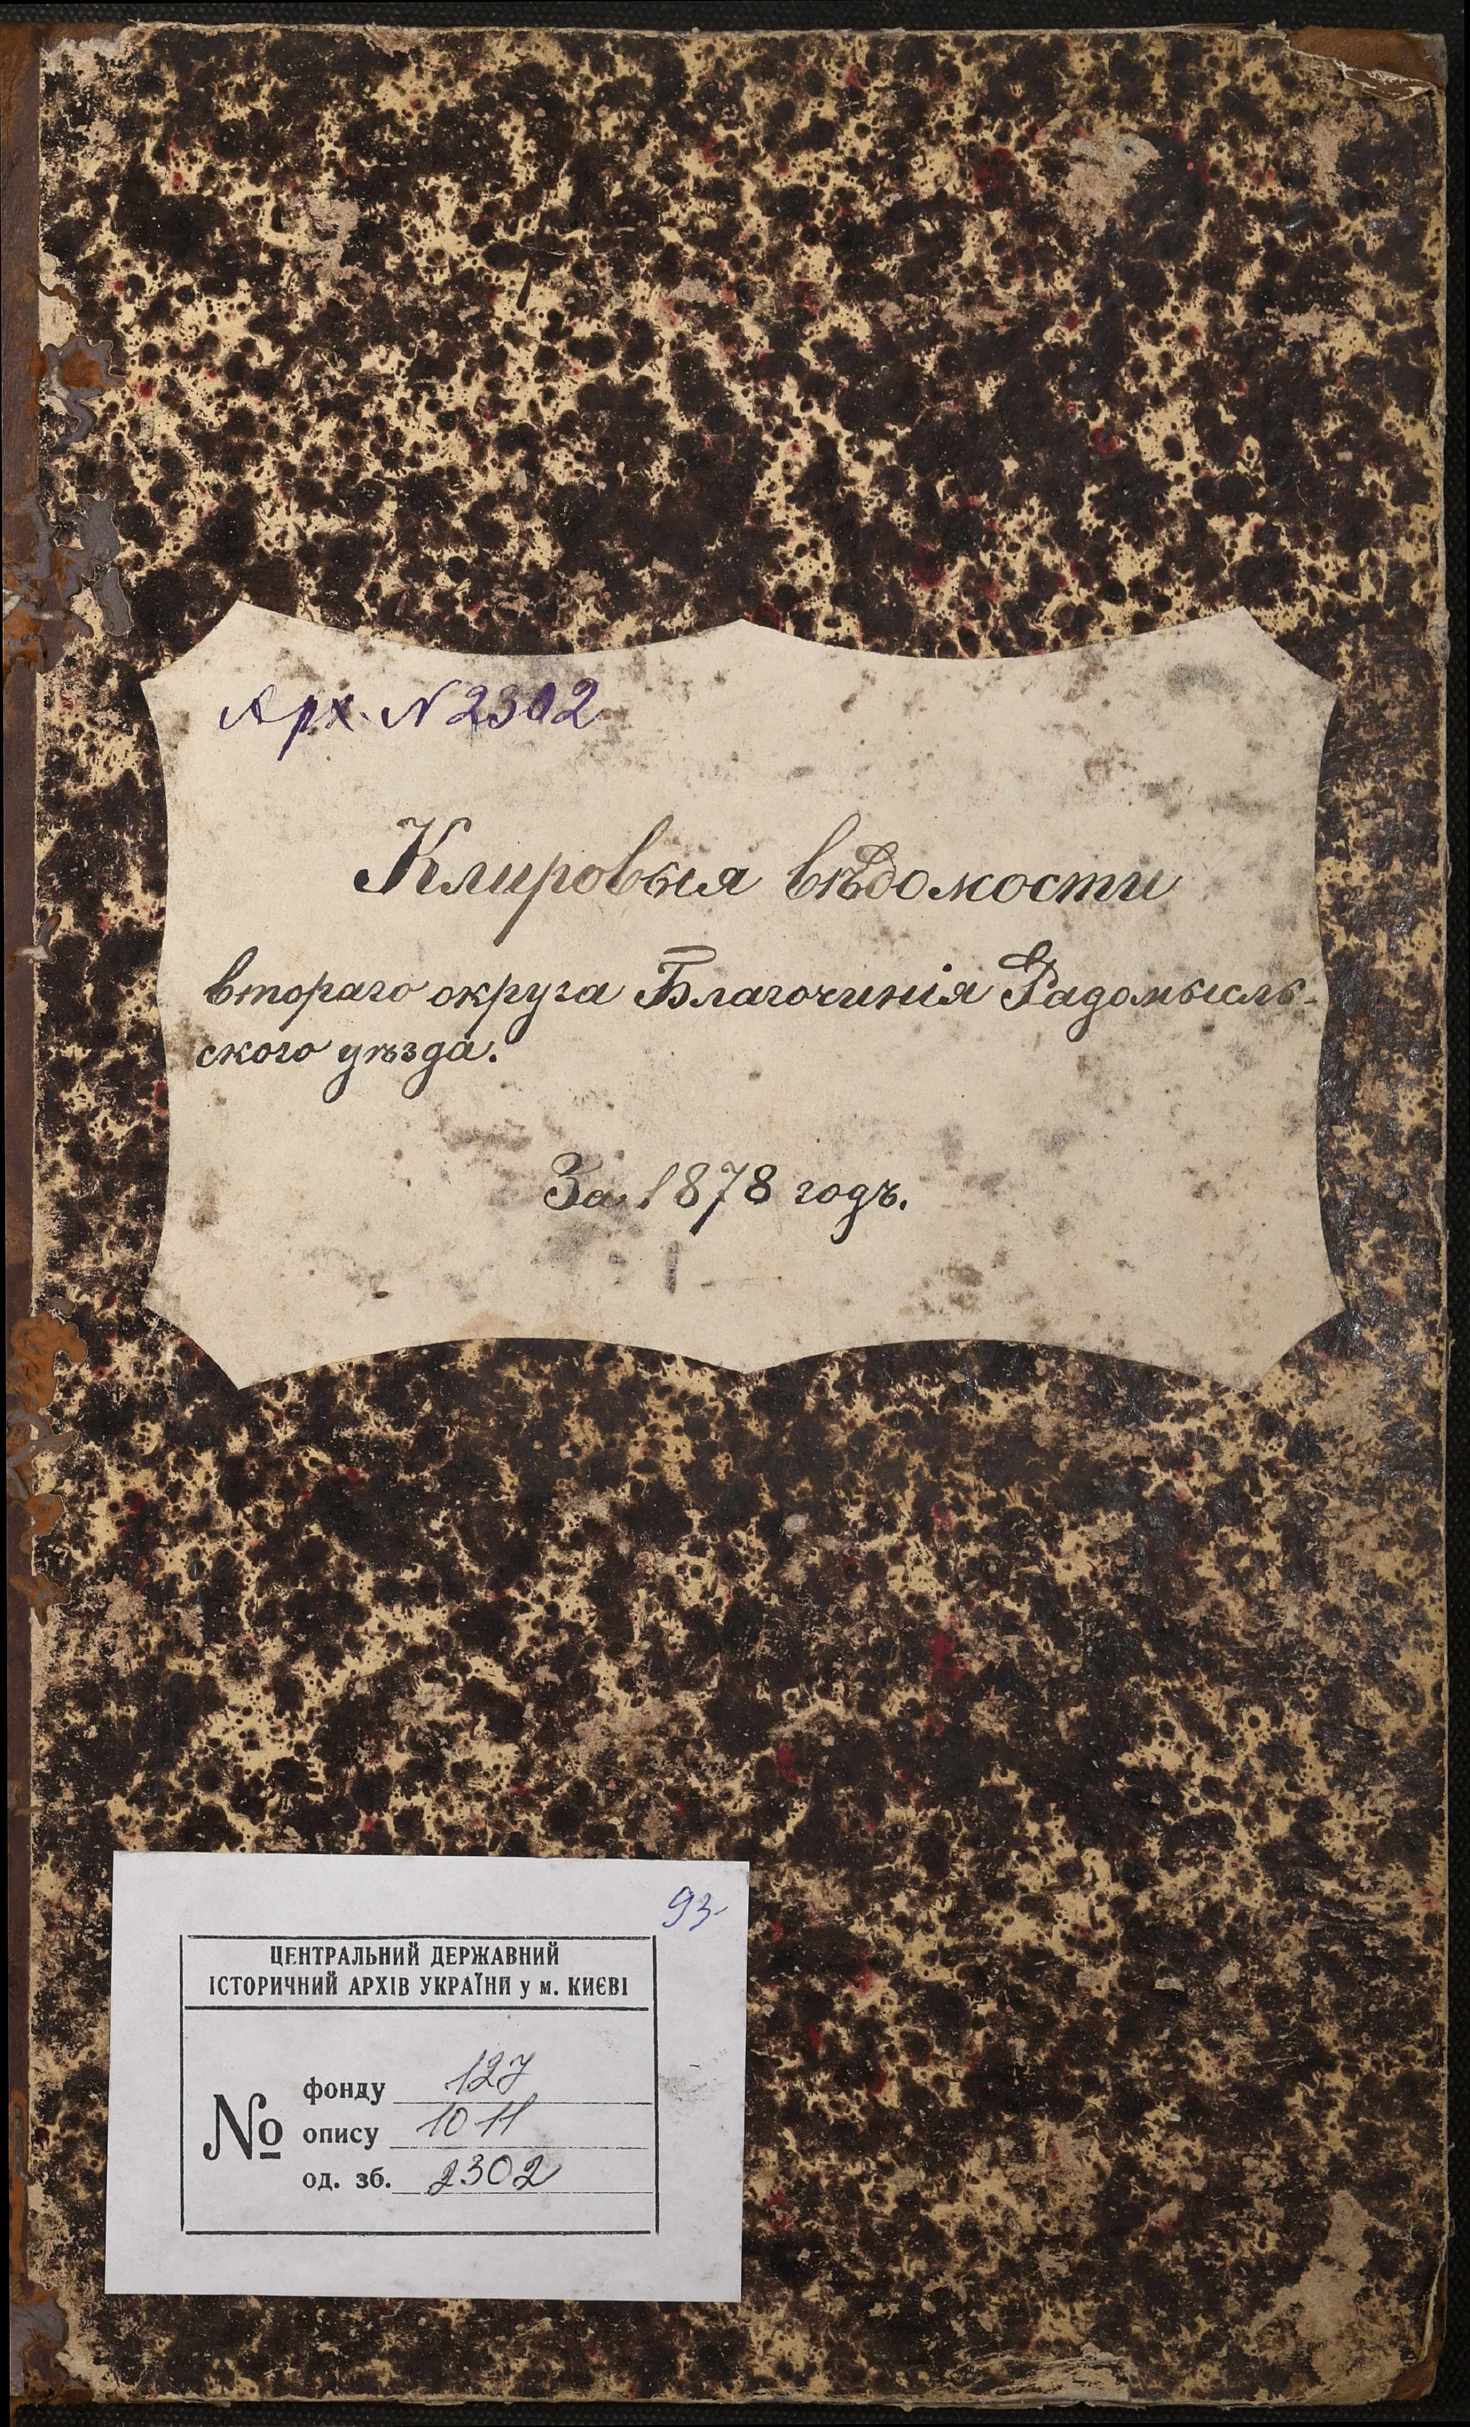 Арх. N 2302
Клировыя вѣдомости
втораго округа Благочинія Радомысль-
ского уѣзда.
За 1878 годъ.
93
ЦЕНТРАЛЬНИЙ ДЕРЖАВНИЙ
ІСТОРИЧНИЙ АРХІВ УКРАЇНИ у м. КИЄВІ
№
фонду 127
опису 1011
од. зб. 2302